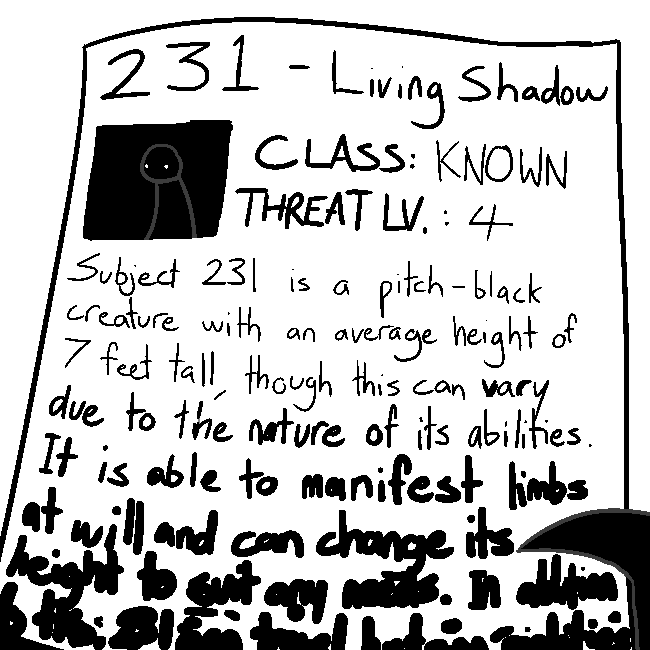 231 - Living Shadow
CLASS: KNOWN
THREAT LV.: 4
Subject 231 is a pitch-black
creature with an average height of
7 feet tall, though this can vary
due to the nature of its abilities.
It is able to manifest limbs
at will and can change its
height to suit any needs. In addition
to this, 231 can travel